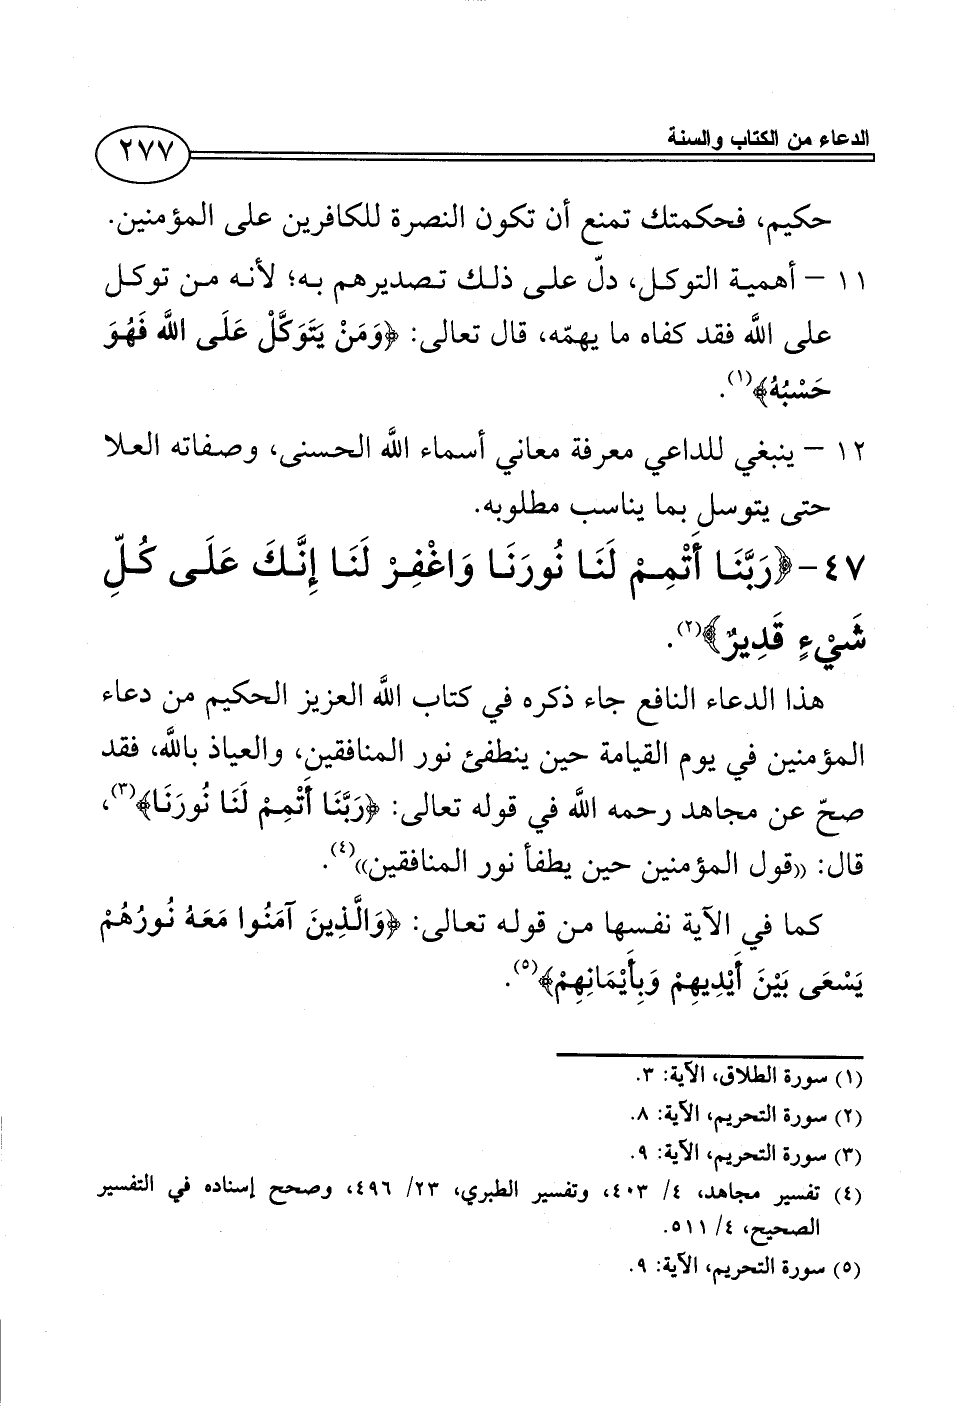 الدعاء من الكتاب والسنة
٢٧٧
حكيم، فحكمتك تمنع أن تكون النصرة للكافرين على المؤمنين.
١١ – أهمية التوكل، دلّ على ذلك تصديرهم به؛ لأنه من توكل
على الله فقد كفاه ما يهمّه، قال تعالى: ﴿وَمَنْ يَتَوَكَّلْ عَلَى اللَّهِ فَهُوَ
حَسْبُهُ﴾(١).
١٢ – ينبغي للداعي معرفة معاني أسماء الله الحسنى، وصفاته العلا
حتى يتوسل بما يناسب مطلوبه.
٤٧-﴿رَبَّنَا أَتْمِمْ لَنَا نُورَنَا وَاغْفِرْ لَنَا إِنَّكَ عَلَى كُلِّ
شَيْءٍ قَدِيرٌ﴾(٢).
هذا الدعاء النافع جاء ذكره في كتاب الله العزيز الحكيم من دعاء
المؤمنين في يوم القيامة حين ينطفئ نور المنافقين، والعياذ بالله، فقد
صحّ عن مجاهد رحمه الله في قوله تعالى: ﴿رَبَّنَا أَتْمِمْ لَنَا نُورَنَا﴾(٣)،
قال: «قول المؤمنين حين يطفأ نور المنافقين»(٤).
كما في الآية نفسها من قوله تعالى: ﴿وَالَّذِينَ آمَنُوا مَعَهُ نُورُهُمْ
يَسْعَى بَيْنَ أَيْدِيهِمْ وَبِأَيْمَانِهِمْ﴾(٥).
(١) سورة الطلاق، الآية: ٣.
(٢) سورة التحريم، الآية: ٨.
(٣) سورة التحريم، الآية: ٩.
(٤) تفسير مجاهد، ٤/ ٤٠٣، وتفسير الطبري، ٢٣/ ٤٩٦، وصحح إسناده في التفسير
الصحيح، ٤/ ٥١١.
(٥) سورة التحريم، الآية: ٩.